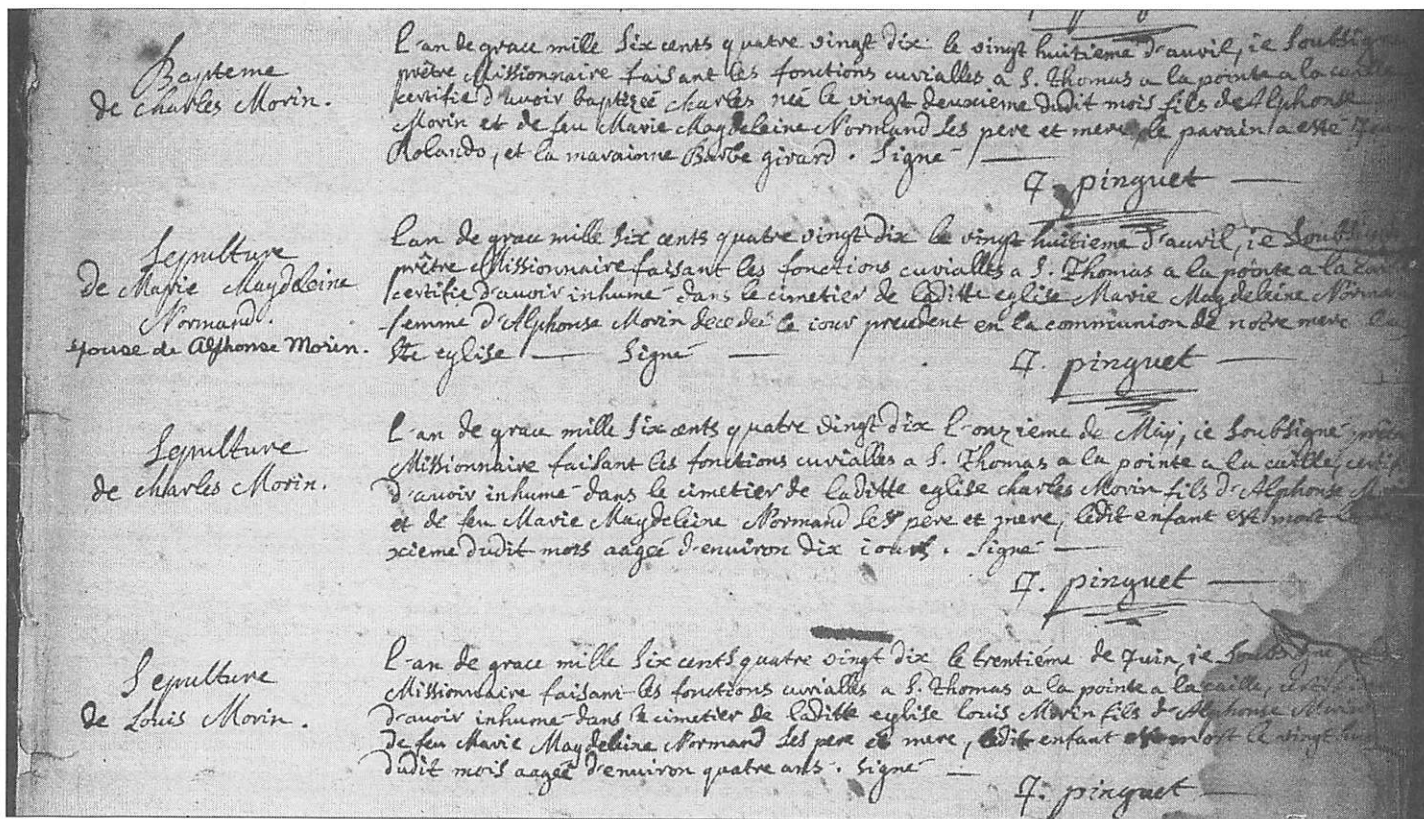 Bapteme
de Charles Morin.
L'an de grace mille six cents quatre vingt dix le vingt huitieme d'auvril, ie soubsigné
prêtre Missionnaire faisant les fonctions curialles a S. Thomas a la pointe a la caille
certifie d'avoir baptizeé charles neé le vingt deuxieme dudit mois fils de Alphonse
Morin et de feu Marie Magdeleine Normand ses pere et mere, le parain a esté
Rolando, et la marainne Barbe girard. Signé
J. pinguet
Sepulture
de Marie Magdeleine
Normand.
Epouse de Alphonse Morin.
L'an de grace mille six cents quatre vingt dix le vingt huitieme d'auvril, ie soubsigné
prêtre Missionnaire faisant les fonctions curialles a S. Thomas a la pointe a la
certifie d'avoir inhumé dans le cimetier de laditte eglise Marie Magdeleine Norman
femme d'Alphonse Morin decedeé le iour precedent en la communion de notre mere la
Ste eglise Signé
J. pinguet
Sepulture
de Charles Morin.
L'an de grace mille six cents quatre vingt dix l'onzieme de May, ie soubsigné prêtre
Missionnaire faisant les fonctions curialles a S. Thomas a la pointe a la caille, certifi
d'avoir inhumé dans le cimetier de laditte eglise charles Morin fils d'Alphonse
et de feu Marie Magdeleine Normand ses pere et mere, ledit enfant est mort le
xieme dudit mois aageé d'environ dix iours. Signé
J. pinguet
Sepulture
de Louis Morin.
L'an de grace mille six cents quatre vingt dix le trentiéme de Juin, ie soubsigné
Missionnaire faisant les fonctions curialles a S. Thomas a la pointe a la caille, certifie
d'avoir inhumé dans le cimetier de laditte eglise louis Morin fils d'Alphonse Morin
de feu Marie Magdeleine Normand ses pere et mere, ledit enfant est mort le vingt
dudit mois aageé d'environ quatre ans. Signé
J. pinguet